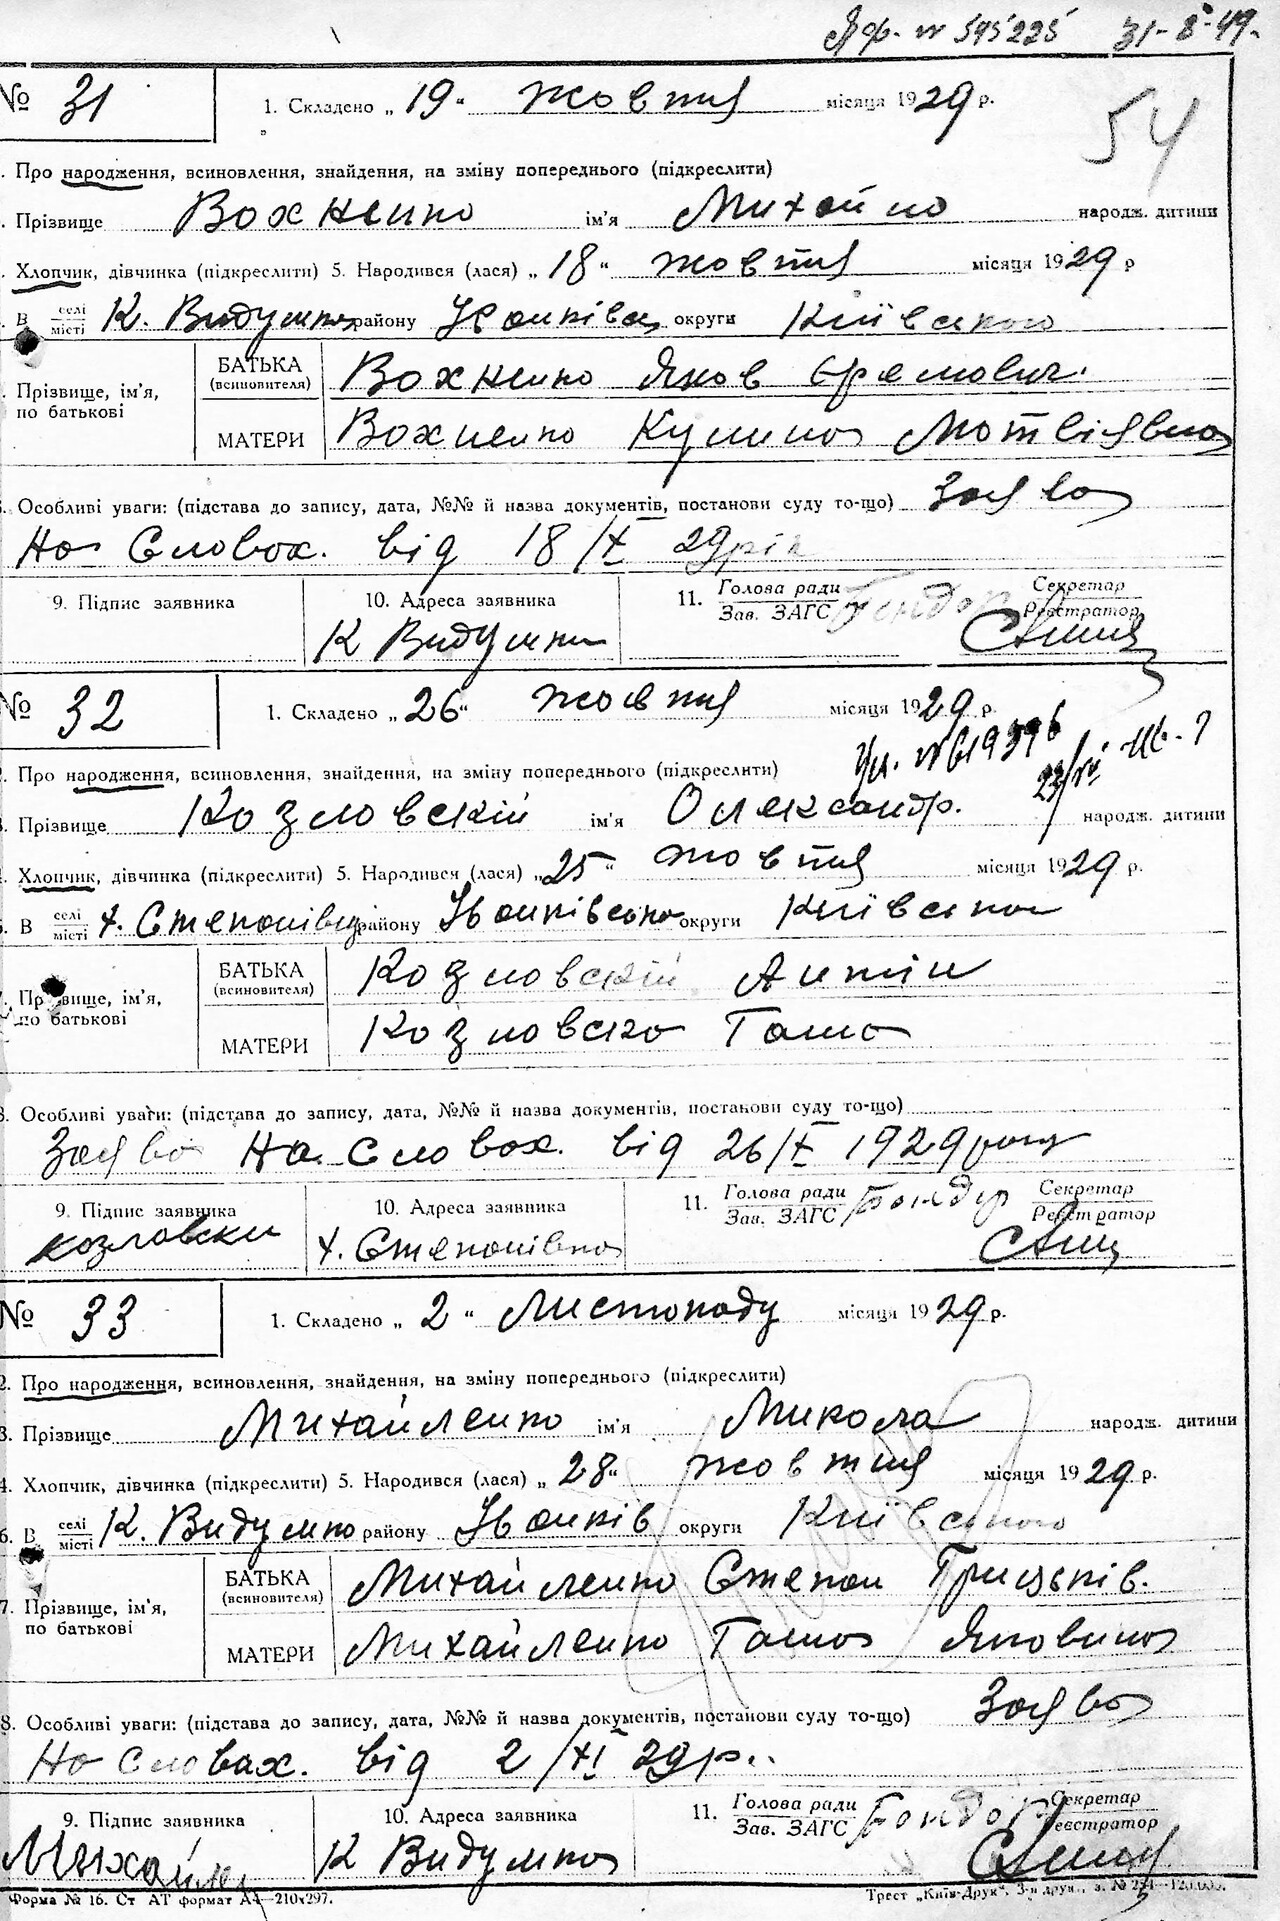 № 595225 31-8-49.
№ 31 1. Складено „19" жовтня місяця 1929 р.
54
. Про народження, всиновлення, знайдення, на зміну попереднього (підкреслити)
. Прізвище Вахненко ім'я Михайло народж. дитини
. Хлопчик, дівчинка (підкреслити) 5. Народився (лася) „18" жовтня місяця 1929 р
. В селі місті К. Видумка району Іванків округи Київського
БАТЬКА (всиновителя) Вахненко Яков Єремович.
. Прізвище, ім'я, по батькові
МАТЕРИ Вахненко Кулина Мотвіявна
. Особливі уваги: (підстава до запису, дата, №№ й назва документів, постанови суду то-що) Заява
На Словах. від 18/X 29 рік
9. Підпис заявника 10. Адреса заявника 11. Голова ради Зав. ЗАГС Бондар Секретар Реєстратор
К Видумка
№ 32 1. Складено „26" жовтня місяця 1929 р.
№ 619396
. Про народження, всиновлення, знайдення, на зміну попереднього (підкреслити)
. Прізвище Козловскій ім'я Олександр. народж. дитини
. Хлопчик, дівчинка (підкреслити) 5. Народився (лася) „25" жовтня місяця 1929 р.
. В селі місті х. Степанівка району Іванківсько округи Київська
БАТЬКА (всиновителя) Козловскій Антін
. Прізвище, ім'я, по батькові
МАТЕРИ Козловска Ганна
. Особливі уваги: (підстава до запису, дата, №№ й назва документів, постанови суду то-що)
Заява На Словах. від 26/X 1929 року
9. Підпис заявника 10. Адреса заявника 11. Голова ради Зав. ЗАГС Бондар Секретар Реєстратор
козловски х. Степанівка
№ 33 1. Складено „2" Листопаду місяця 1929 р.
2. Про народження, всиновлення, знайдення, на зміну попереднього (підкреслити)
3. Прізвище Михайленко ім'я Микола народж. дитини
4. Хлопчик, дівчинка (підкреслити) 5. Народився (лася) „28" жовтня місяця 1929 р.
6. В селі місті К. Видумка району Іванків округи Київського
БАТЬКА (всиновителя) Михайленко Степан Грицьків.
7. Прізвище, ім'я, по батькові
МАТЕРИ Михайленко Ганна Яковина
8. Особливі уваги: (підстава до запису, дата, №№ й назва документів, постанови суду то-що) Заява
На Словах. від 2/XI 29 р.
9. Підпис заявника 10. Адреса заявника 11. Голова ради Зав. ЗАГС Бондар Секретар Реєстратор
К Видумка
Форма № 16. Ст АТ формат А4—210х297. Трест „Київ-Друк",